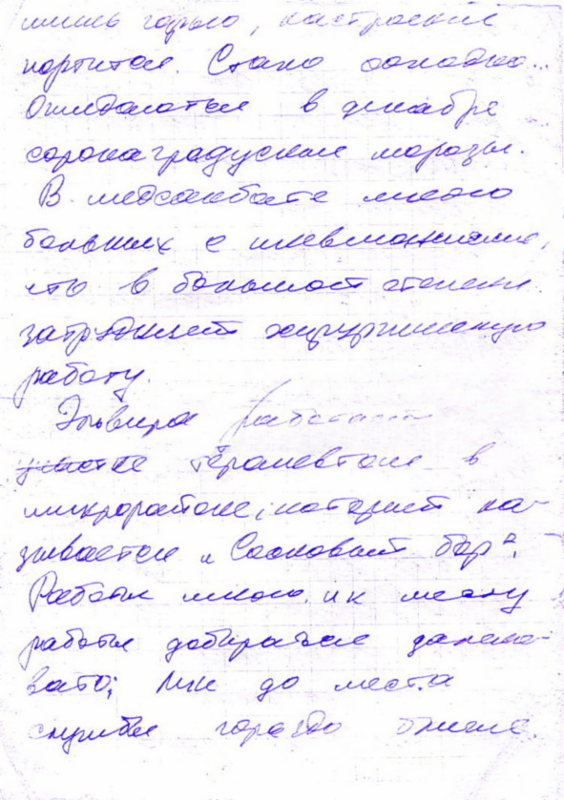 лишь горько, настроение
портится. Стало холодно...
Ожидаются в декабре
сорокаградусные морозы.
В медсанбате много
больных с пневмониями,
что в большой степени
затрудняет хирургическую
работу.
Эльвира работает
терапевтом в
микрорайоне, который на-
зывается „Сосновый бор".
Работы много. и к месту
работы добираться далеко-
вато; мне до места
службы гораздо ближе.